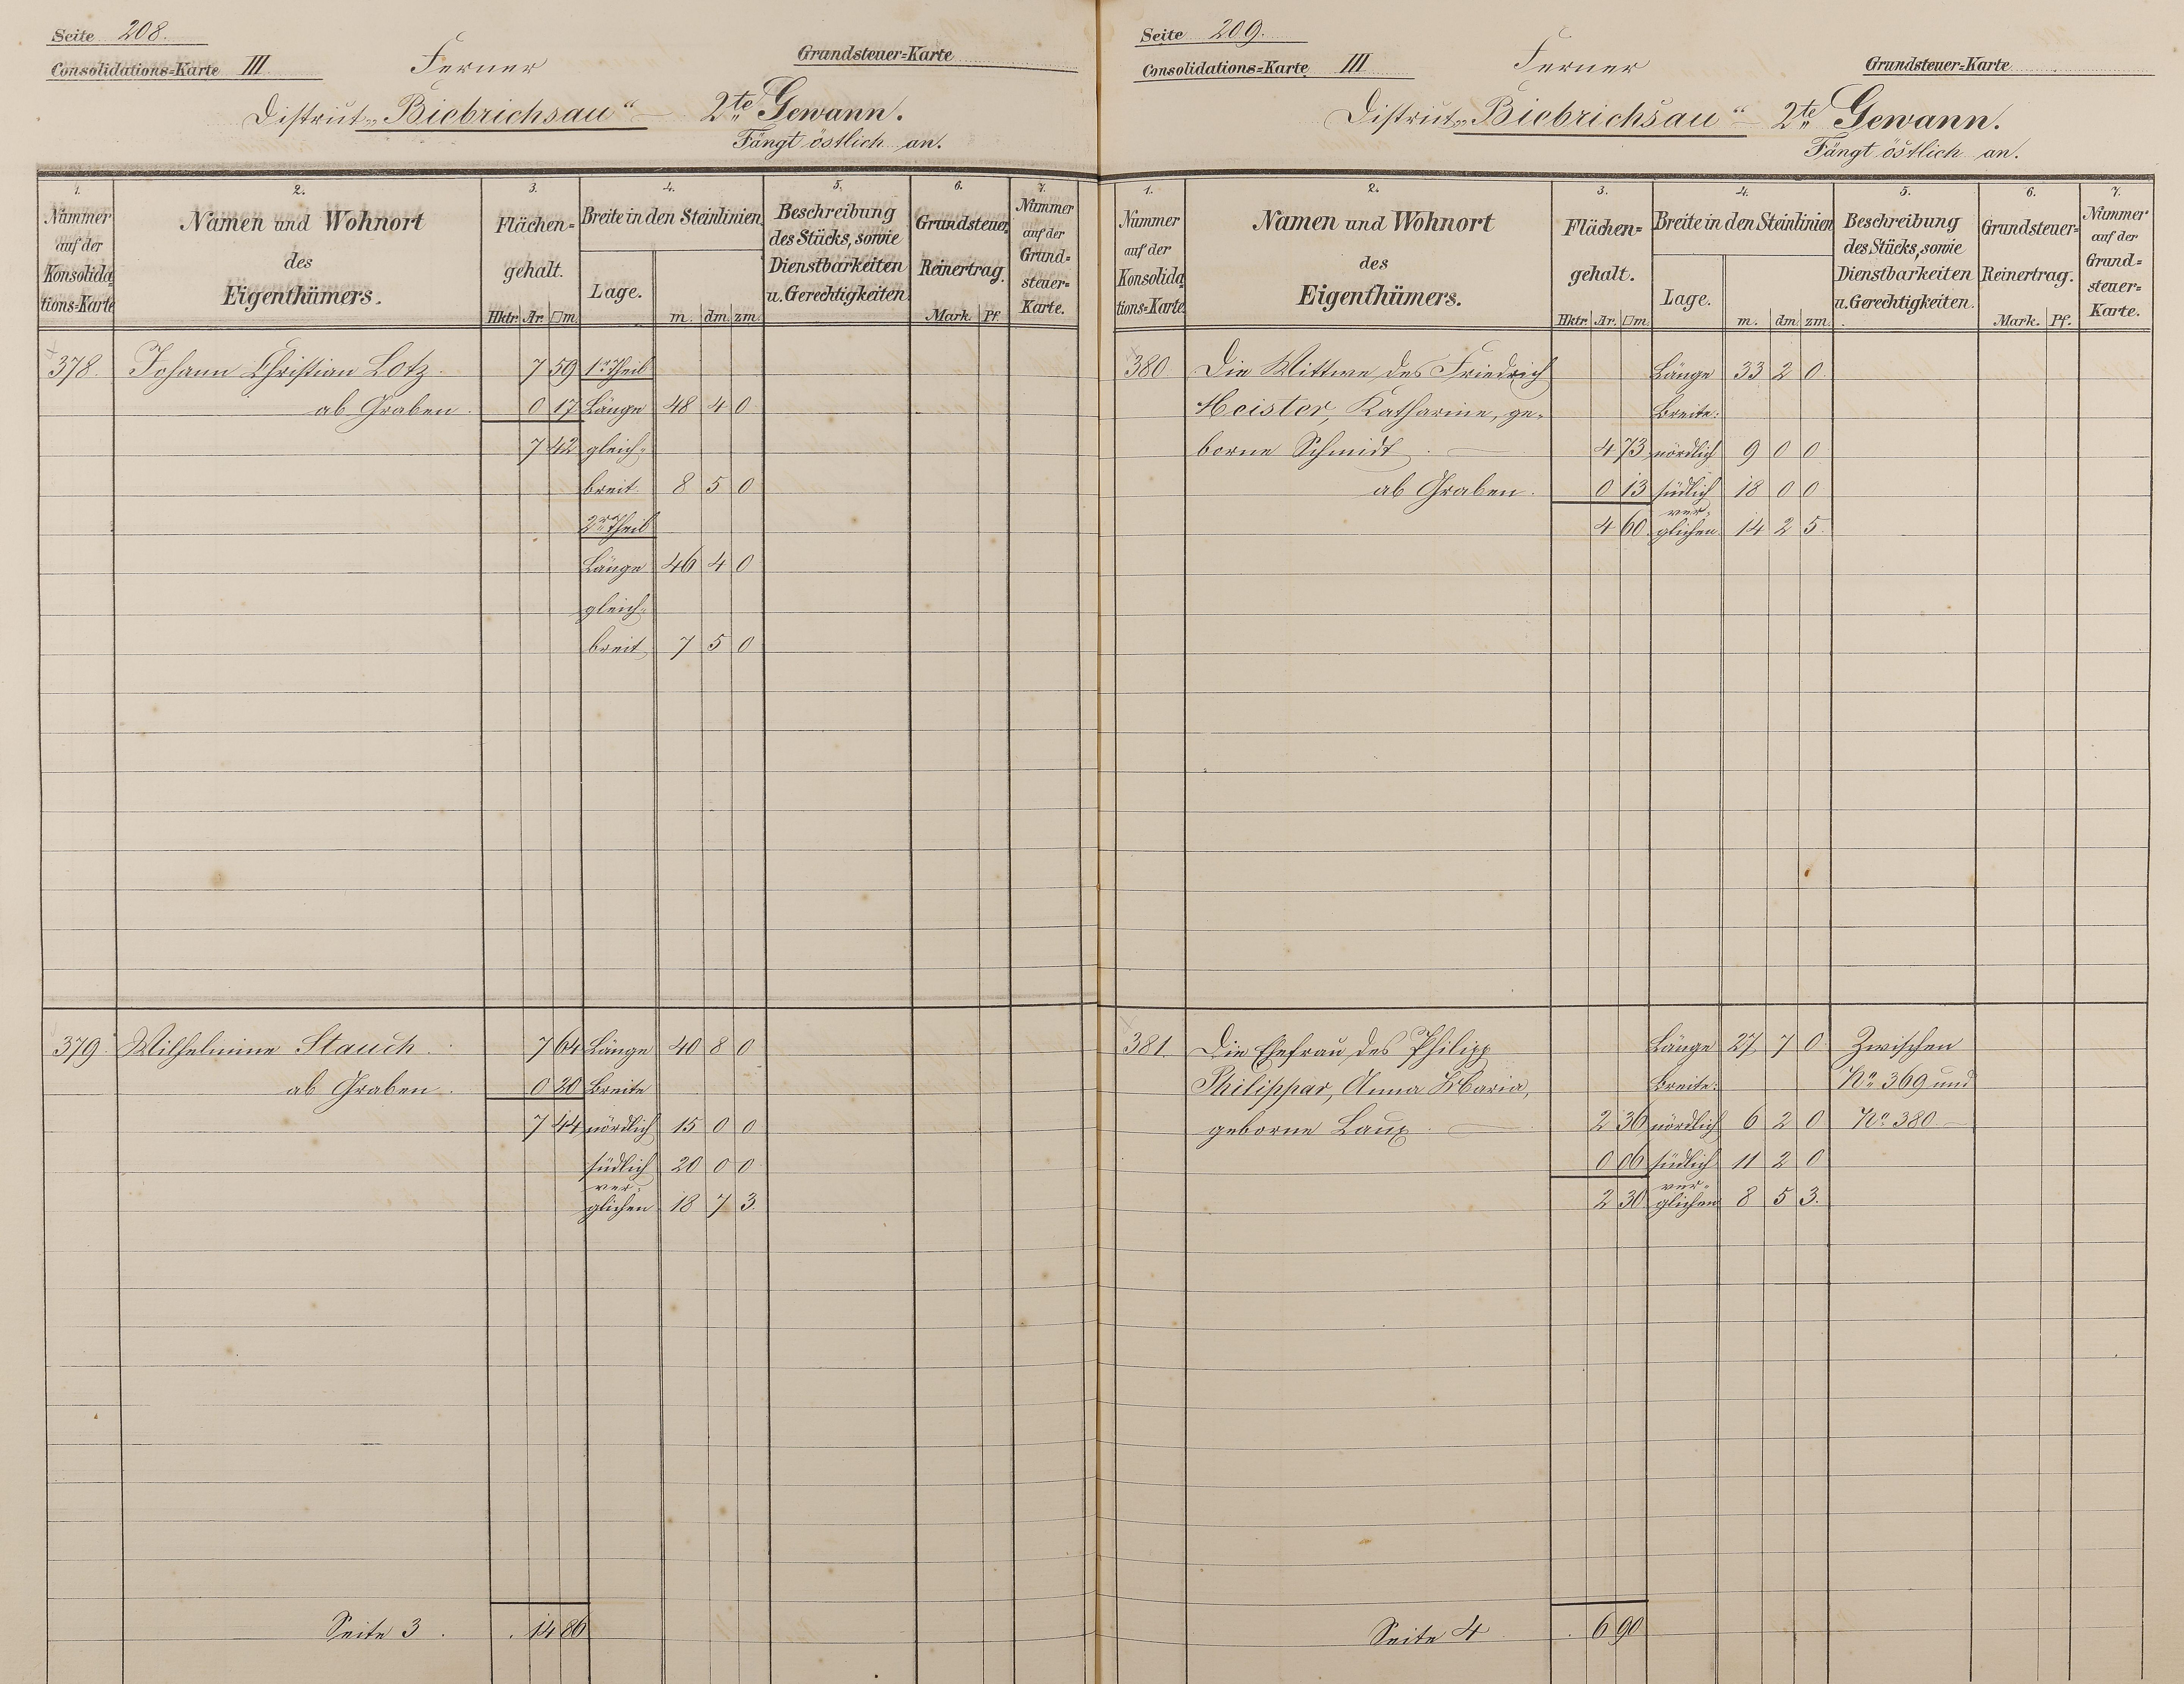 Seite 208.
Consolidations=Karte III
Ferner
Grundsteuer=Karte
District „Biebrichsau“ — 2te Gewann.
Fängt östlich an.
1. 2. 3. 4. 5. 6. 7.
Nummer auf der Konsolidations=Karte
Namen und Wohnort des Eigenthümers.
Flächen=gehalt.
Hktr. Ar. □m.
Breite in den Steinlinien
Lage. m. dm. zm.
Beschreibung des Stücks, sowie Dienstbarkeiten u. Gerechtigkeiten.
Grundsteuer Reinertrag.
Mark. Pf.
Nummer auf der Grund=steuer=Karte.
378. Johann Christian Lotz. 7 59 1r Theil
ab Graben. 0 17 Länge 48 4 0
7 42 gleich=
breit 8 5 0
2r Theil
Länge 46 4 0
gleich=
breit 7 5 0
379. Wilhelmine Stauch. 7 64 Länge 40 8 0
ab Graben. 0 20 Breite
7 44 nördlich 15 0 0
südlich 20 0 0
ver=
glichen 18 7 3.
Seite 3. 14 86
Seite 209.
Consolidations=Karte III
Ferner
Grundsteuer=Karte
District „Biebrichsau“ — 2te Gewann.
Fängt östlich an.
1. 2. 3. 4. 5. 6. 7.
Nummer auf der Konsolidations=Karte
Namen und Wohnort des Eigenthümers.
Flächen=gehalt.
Hktr. Ar. □m.
Breite in den Steinlinien
Lage. m. dm. zm.
Beschreibung des Stücks, sowie Dienstbarkeiten u. Gerechtigkeiten.
Grundsteuer=Reinertrag.
Mark. Pf.
Nummer auf der Grund=steuer=Karte.
380. Die Wittwe des Friedrich Länge 33 2 0.
Meister, Katharine, ge= Breite:
borne Schmidt. — 4 73 nördlich 9 0 0
ab Graben. 0 13 südlich 18 0 0
ver=
4 60 glichen 14 2 5.
381. Die Ehefrau des Philipp Länge 27 7 0 Zwischen
Philippar, Anna Maria, Breite: No 369 und
geborne Laux. — 2 36 nördlich 6 2 0 No 380. —
0 06 südlich 11 2 0
ver=
2 30 glichen 8 5 3.
Seite 4 6 90